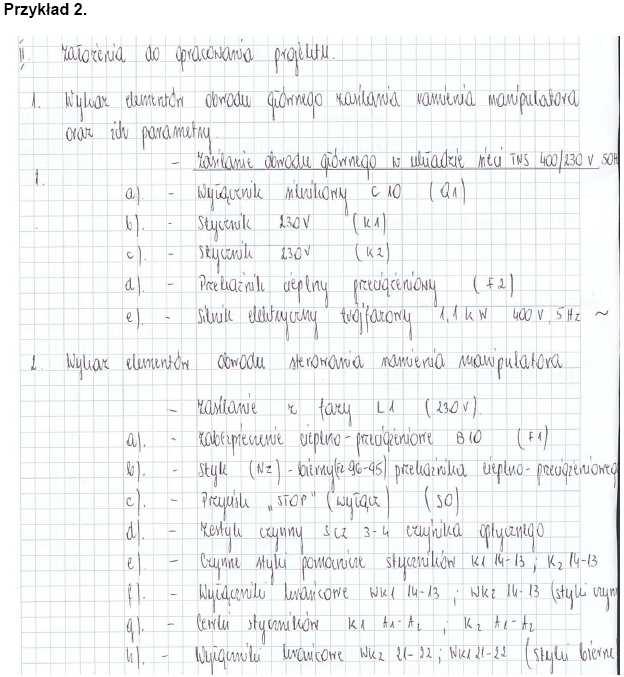 Przykład 2.
II. Założenia do opracowania projektu.
1. Wykaz elementów obwodu głównego zasilania ramienia manipulatora
oraz ich parametry
- Zasilanie obwodu głównego w układzie sieci TNS 400/230 V 50H
1.
a). - Wyłącznik silnikowy C10 (Q1)
b). - Stycznik 230V (K1)
c). - Stycznik 230V (K2)
d). - Przekaźnik cieplny przeciążeniowy (F2)
e). - Silnik elektryczny trójfazowy 1,1 kW 400 V, 5Hz ~
2. Wykaz elementów obwodu sterowania ramienia manipulatora
- Zasilanie z fazy L1 (230V)
a). - Zabezpieczenie cieplno-przeciążeniowe B10 (F1)
b). - styk (NZ) - bierny (F2 96-95) przekaźnika cieplno-przeciążenioweg
c). - Przycisk „STOP" (wyłącz) (S0)
d). - Zestyk czynny SCZ 3-4 czujnika optycznego
e). - Czynne styki pomocnicze styczników K1 14-13 ; K2 14-13
f). - Wyłączniki krańcowe WK1 14-13 ; WK2 14-13 (styki czyn
g). - Cewki styczników K1 A1-A2 ; K2 A1-A2
h). - Wyłączniki krańcowe WK2 21-22 ; WK1 21-22 (styki bierne